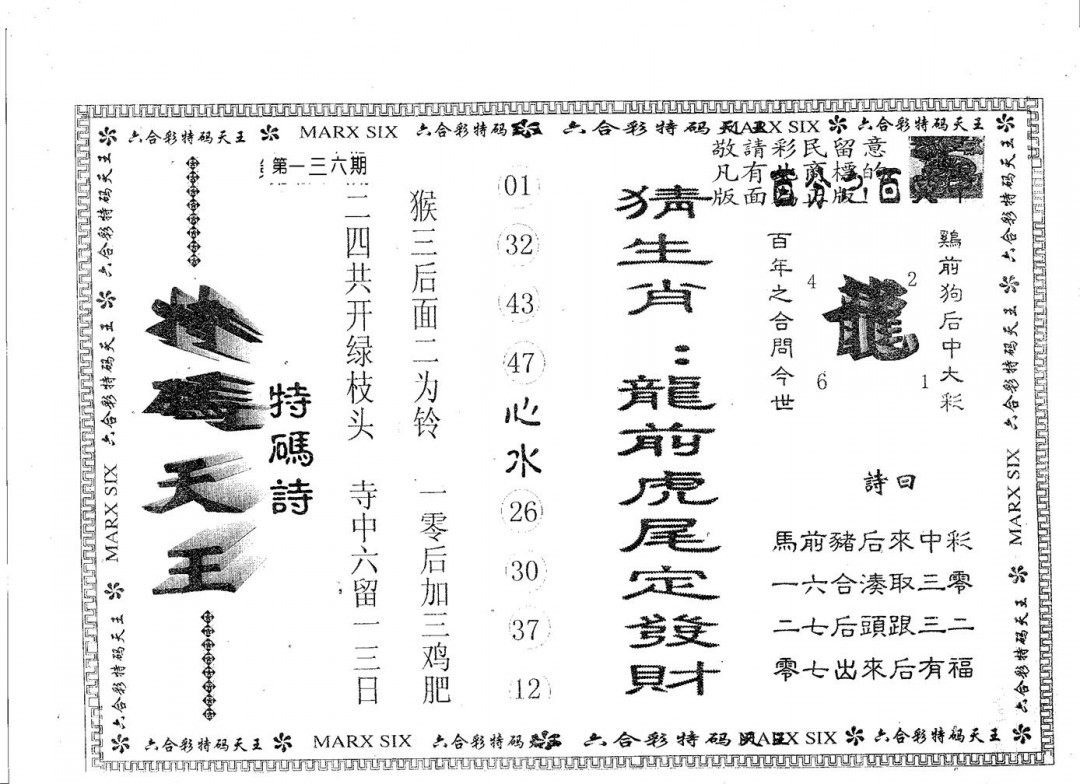 六合彩特码天王 MARX SIX 六合彩特码 六合彩特码天王 MARX SIX 六合彩特码天王
第一三六期
敬請彩民留意
凡有
版面
特碼天王
特碼詩
猴三后面二为铃 一零后加三鸡肥
二四共开绿枝头 寺中六留一三日
01
32
43
47
心水
26
30
37
12
猜生肖：龍前虎尾定發財
鷄前狗后中大彩
百年之合問今世
龍
4
2
6
1
詩曰
馬前豬后來中彩
一六合湊取三零
二七后頭跟三二
零七出來后有福
六合彩特码天王
六合彩特码天王
MARX SIX
六合彩特码天王
六合彩特码天王
六合彩特码天王
MARX SIX
六合彩特码天王
六合彩特码天王 MARX SIX 六合彩特码 六合彩特码天王 MARX SIX 六合彩特码天王